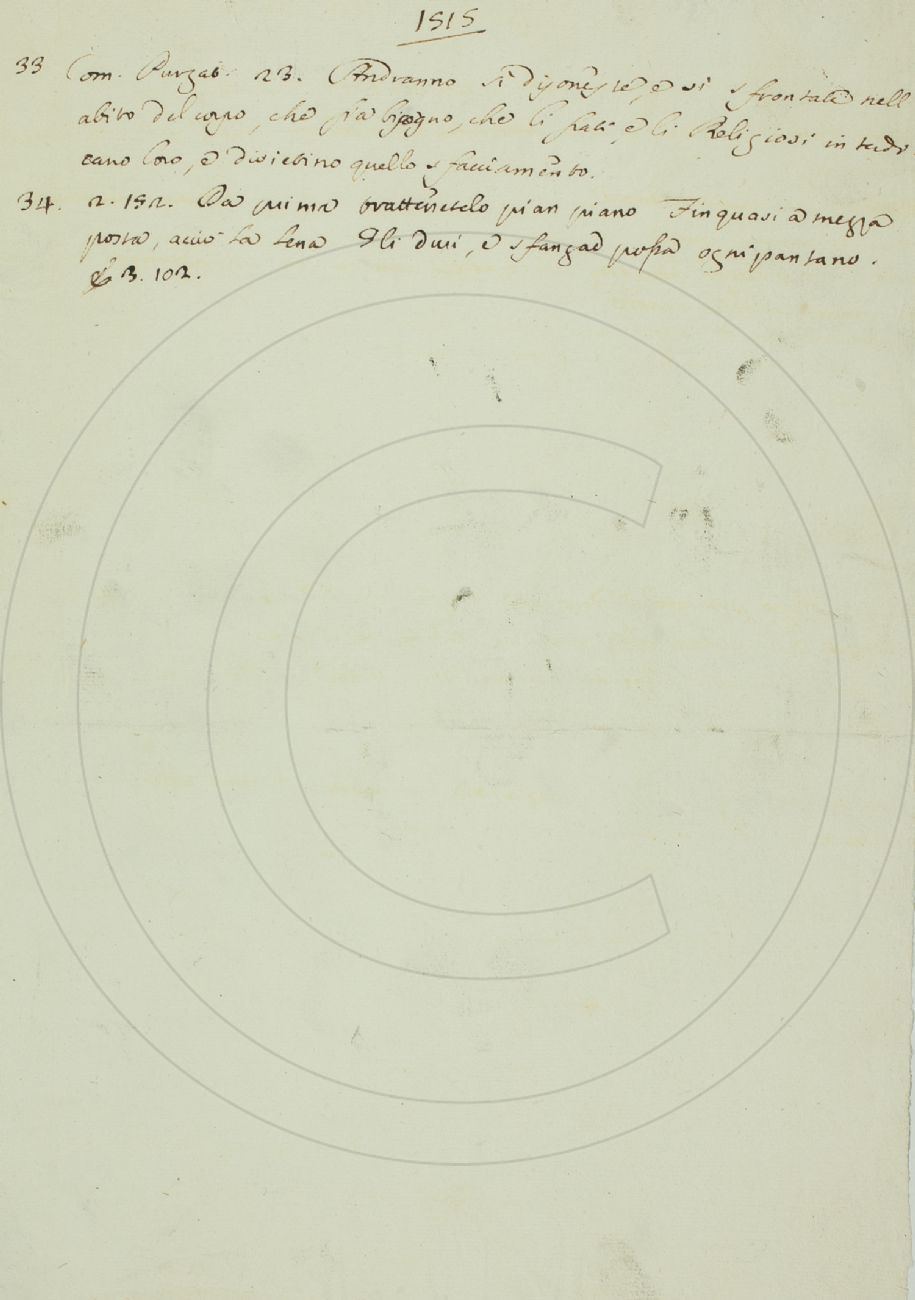 1515
33 Com. Purgat. 23. Andranno sì disoneste, e sì sfrontate nell
abito del corpo, che fia bisogno, che li frati, e li Religiosi in
cano loro, e divietino quello sfacciamento.
34. 2. 152. Da prima trattenetelo pian piano Finquasi a mezza
posta, acciò la lena Gli duri, e sfangar possa ogni pantano.
& 3. 102.